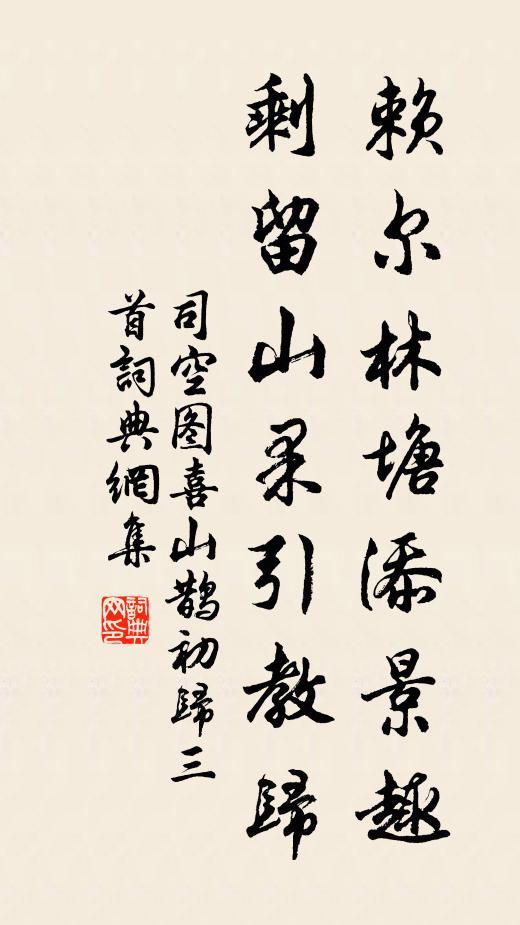 賴尔林塘添景趣
剩留山果引教歸
司空图喜山鵲初歸三
首詞典網集
詞典
网印